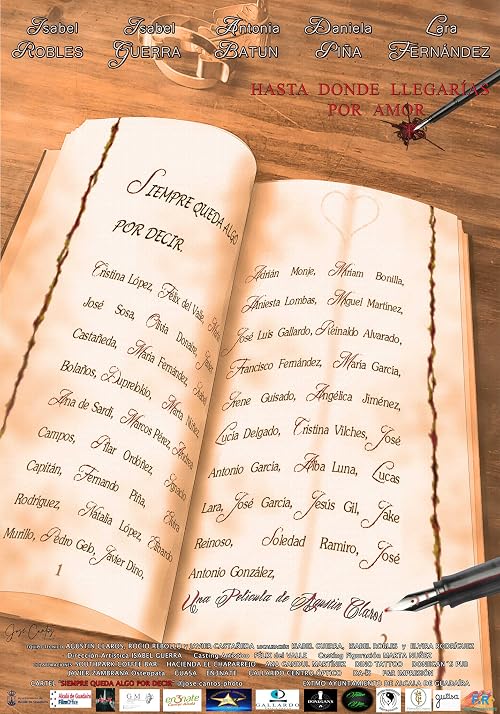 Isabel Isabel Antonia Daniela Lara
ROBLES GUERRA BATUN PIÑA FERNÁNDEZ
HASTA DONDE LLEGARÍAS
POR AMOR
SIEMPRE QUEDA ALGO
POR DECIR.
Cristina López, Félix del Valle,
José Sosa, Olivia Donaire,
Castañeda, María Fernández,
Bolaños, Duprebloko, Marta Núñez,
Ana de Sardi, Marcos Pérez,
Campos, Pilar Ordóñez, Ignacio
Capitán, Fernando Piña,
Rodríguez, Natalia López, Eduardo
Murillo, Pedro Gelo, Javier Dino,
1
Adrián Monje, Miriam Bonilla,
Iniesta Lombas, Miguel Martínez,
José Luis Gallardo, Reinaldo Alvarado,
Francisco Fernández, María García,
Irene Guisado, Angélica Jiménez,
Lucía Delgado, Cristina Vilches, José
Antonio García, Alba Luna, Lucas
Lara, José García, Jesús Gil, Jake
Reinoso, Soledad Ramiro, José
Antonio González,
Una Película de Agustín Claros
2
AGUSTIN CLAROS, ROCIO REBOLLO Y JAVIER CASTAÑEDA LOCALIZACION: ISABEL GUERRA, ISABEL ROBLES Y ELVIRA RODRÍGUEZ
Dirección Artística ISABEL GUERRA Casting FÉLIX del VALLE Casting Figuración MARTA NUÑEZ
SOUTHPARK COFFEE BAR HACIENDA EL CHAPARREJO MARTÍNEZ DINO TATTOO DONEGAN'S PUB
JAVIER ZAMBRANA Osteopata GUASA EN3NATE GALLARDO CENTRO ÓPTICO P&R IMPRESIÓN
CARTEL "SIEMPRE QUEDA ALGO POR DECIR" ©jose cantos photo EXTMO AYUNTAMIENTO DE ALCALA DE GUADAÍRA